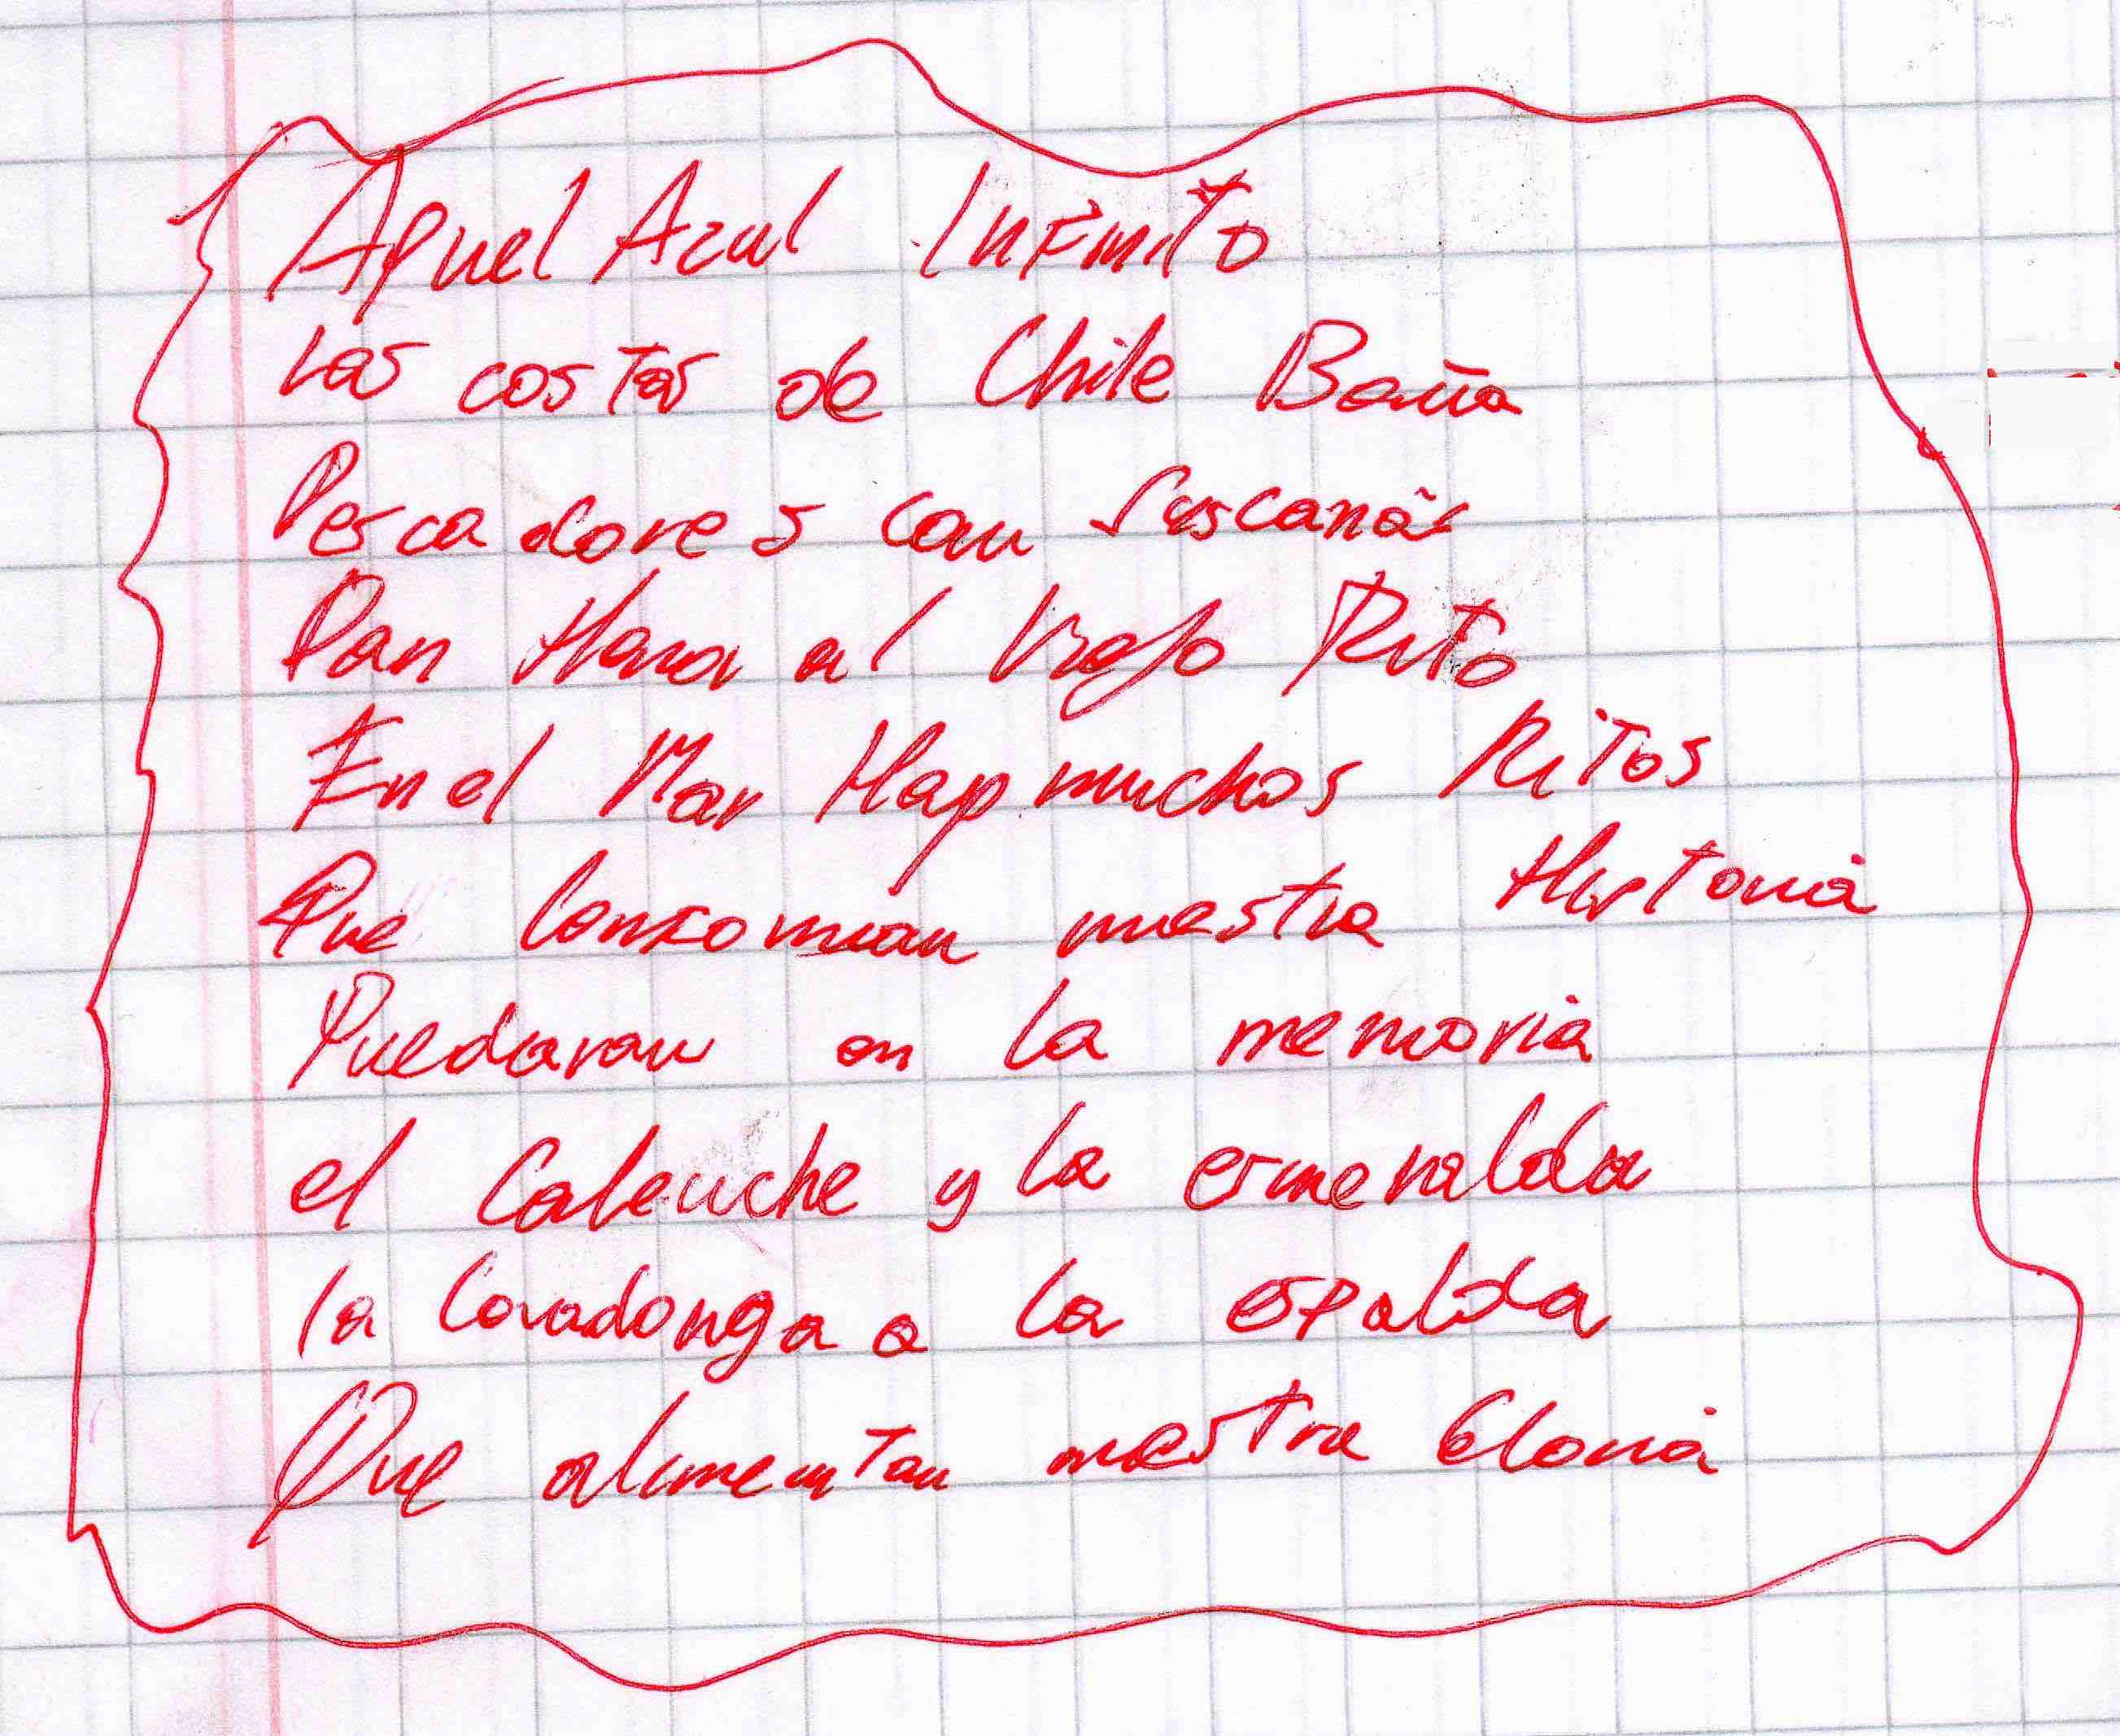 Aquel Azul Infinito
Las costas de Chile Baña
Pescadores con sus cañas
Dan Honor al Viejo Rito
En el Mar Hay muchos Ritos
Que Conforman nuestra Historia
Quedaran en la memoria
el Caleuche y la esmeralda
la Covadonga a la espalda
Que alimentan nuestra Gloria